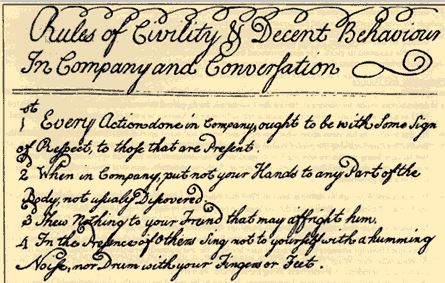 Rules of Civility & Decent Behaviour
In Company and Conversation
1st Every Action done in Company, ought to be with Some Sign
of Respect, to those that are Present.
2d When in Company, put not your Hands to any Part of the
Body, not usualy Discovered.
3d Shew Nothing to your Freind that may affright him.
4 In the Presence of Others Sing not to yourself with a humming
Noise, nor Drum with your Fingers or Feet